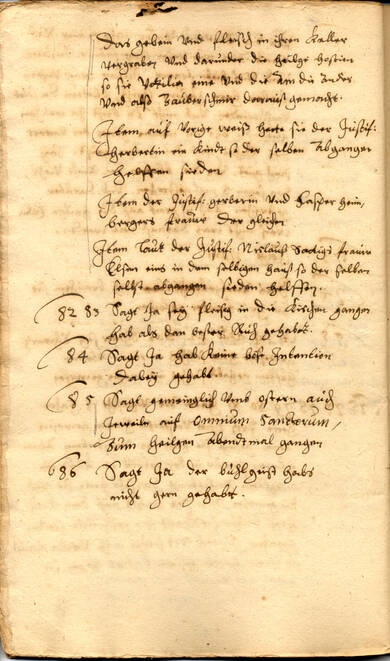 Das gebein und fleisch in ihren Keller
vergraben und darunder die heilge Hostien
so sie eine und die Am die Ander
und alß Zauberschmir daraus gemacht.
Item, auf vorige weiß hette sie der Justif:
herbertin ein Kindt so der selben Abgangen
helffen sieden
Item der Justif: gerberin und Casper heim,
bergers frauw der gleichen
Item laut der Justif: Niclauß frauw
Elsen eins in dem selbigen hauß so der selben
selbst abgangen sieden helffen.
82 83 Sagt Ja sey fleisig in die Kirchen gangen
hab als dan bester Ruh gehabt.
84 Sagt Ja hab Keine böse Intention
dabey gehabt.
85 Sagt gemeinglich umb ostern auch
Jeweils auf Omnium Sanctorum,
zum heilgen Abendtmal gangen
86 Sagt Ja der buhlgeist habs
nicht gern gehabt.